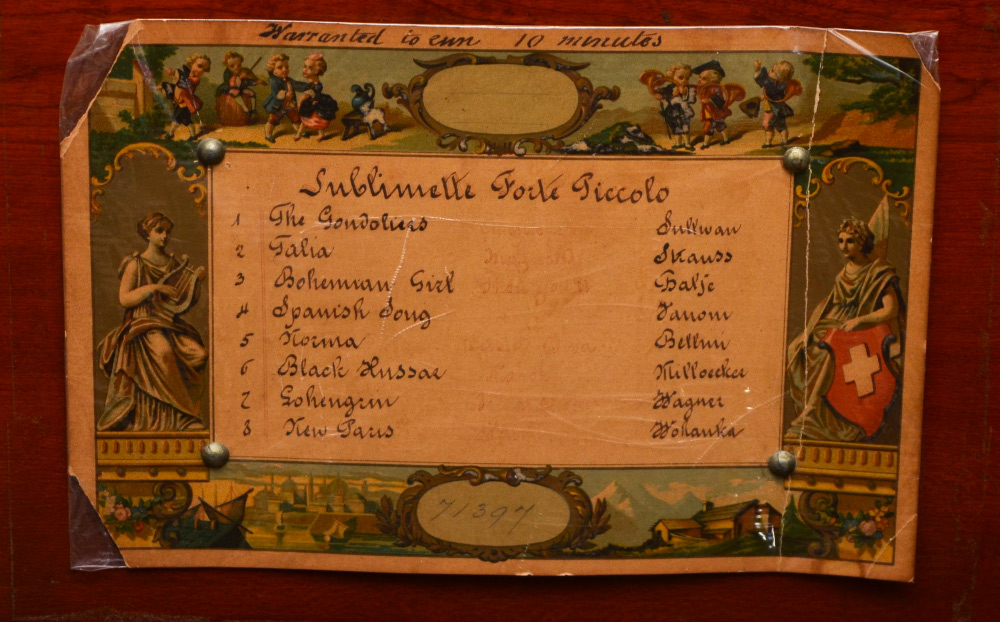 Warranted to run 10 minutes
Sublimette Forte Piccolo
1 The Gondoliers Sullivan
2 Talia Strauss
3 Bohemian Girl Balfe
4 Spanish Song
5 Norma Bellini
6 Black Hussar Milloecker
7 Lohengrin Wagner
8 New Paris Wohanka
71397